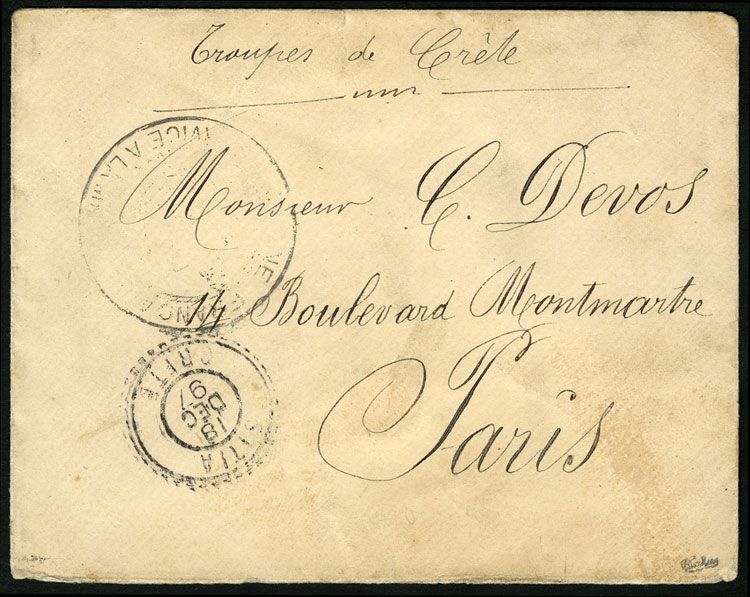 Troupes de Crète
Monsieur C. Devos
14 Boulevard Montmartre
Paris
CRETE
SITIA
DEC
97